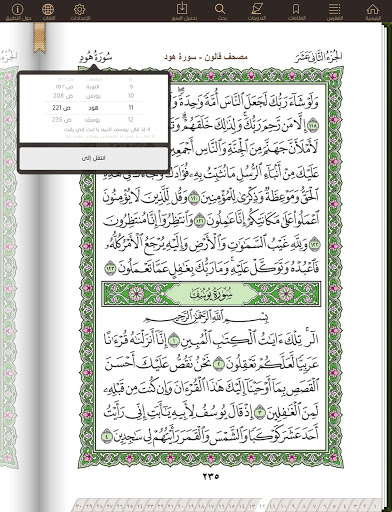 الرئيسية الفهرس العلامات التدوينات بحث تحميل السور الإعدادات اللغات حول التطبيق
الجزء الثاني عشر مصحف قالون - سورة هود سورة هود
9 التوبة ص 187
10 يونس ص 208
11 هود ص 221
12 يوسف ص 235
إذ قال يوسف لأبيه يا أبت إني رأيت
انتقل إلى
وَلَوْ شَآءَ رَبُّكَ لَجَعَلَ النَّاسَ أُمَّةً وَٰحِدَةً
إِلَّا مَن رَّحِمَ رَبُّكَ وَلِذَٰلِكَ خَلَقَهُمْ
لَأَمْلَأَنَّ جَهَنَّمَ مِنَ الْجِنَّةِ وَالنَّاسِ أَجْمَعِينَ
عَلَيْكَ مِنْ أَنۢبَآءِ الرُّسُلِ مَا نُثَبِّتُ بِهِۦ فُؤَادَكَ وَجَآءَكَ فِي
الْحَقُّ وَمَوْعِظَةٌ وَذِكْرَىٰ لِلْمُؤْمِنِينَ وَقُل لِّلَّذِينَ لَا يُؤْمِنُونَ
اعْمَلُوا عَلَىٰ مَكَانَتِكُمْ إِنَّا عَٰمِلُونَ وَانتَظِرُوا إِنَّا مُنتَظِرُونَ
وَلِلَّهِ غَيْبُ السَّمَٰوَٰتِ وَالْأَرْضِ وَإِلَيْهِ يَرْجِعُ الْأَمْرُ كُلُّهُ
فَاعْبُدْهُ وَتَوَكَّلْ عَلَيْهِ وَمَا رَبُّكَ بِغَٰفِلٍ عَمَّا تَعْمَلُونَ
سورة يوسف
بِسْمِ اللَّهِ الرَّحْمَٰنِ الرَّحِيمِ
الٓر تِلْكَ ءَايَٰتُ الْكِتَٰبِ الْمُبِينِ ١ إِنَّا أَنزَلْنَٰهُ قُرْءَٰنًا
عَرَبِيًّا لَّعَلَّكُمْ تَعْقِلُونَ ٢ نَحْنُ نَقُصُّ عَلَيْكَ أَحْسَنَ
الْقَصَصِ بِمَا أَوْحَيْنَا إِلَيْكَ هَٰذَا الْقُرْءَانَ وَإِن كُنتَ مِن قَبْلِهِۦ
لَمِنَ الْغَٰفِلِينَ ٣ إِذْ قَالَ يُوسُفُ لِأَبِيهِ يَٰأَبَتِ إِنِّي رَأَيْتُ
أَحَدَ عَشَرَ كَوْكَبًا وَالشَّمْسَ وَالْقَمَرَ رَأَيْتُهُمْ لِي سَٰجِدِينَ ٤
٢٣٥